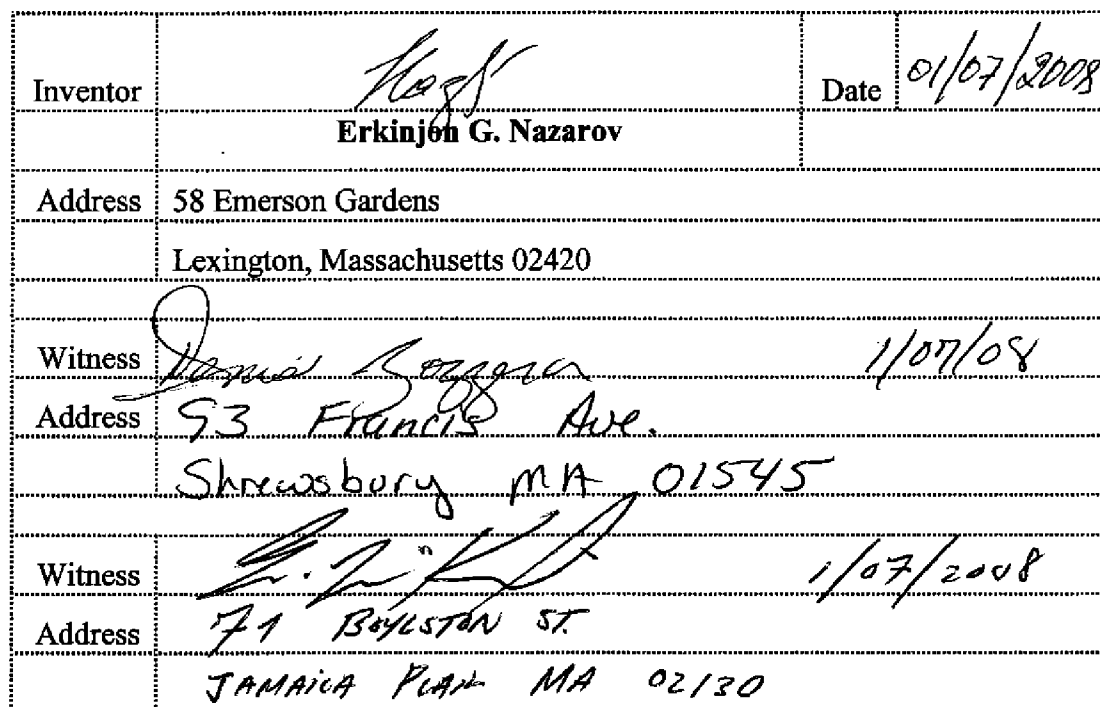 Inventor Date 01/07/2008
Erkinjon G. Nazarov
Address 58 Emerson Gardens
Lexington, Massachusetts 02420
Witness 1/07/08
Address 93 Francis Ave.
Shrewsbury MA 01545
Witness 1/07/2008
Address 71 BOYLSTON ST.
JAMAICA PLAIN MA 02130